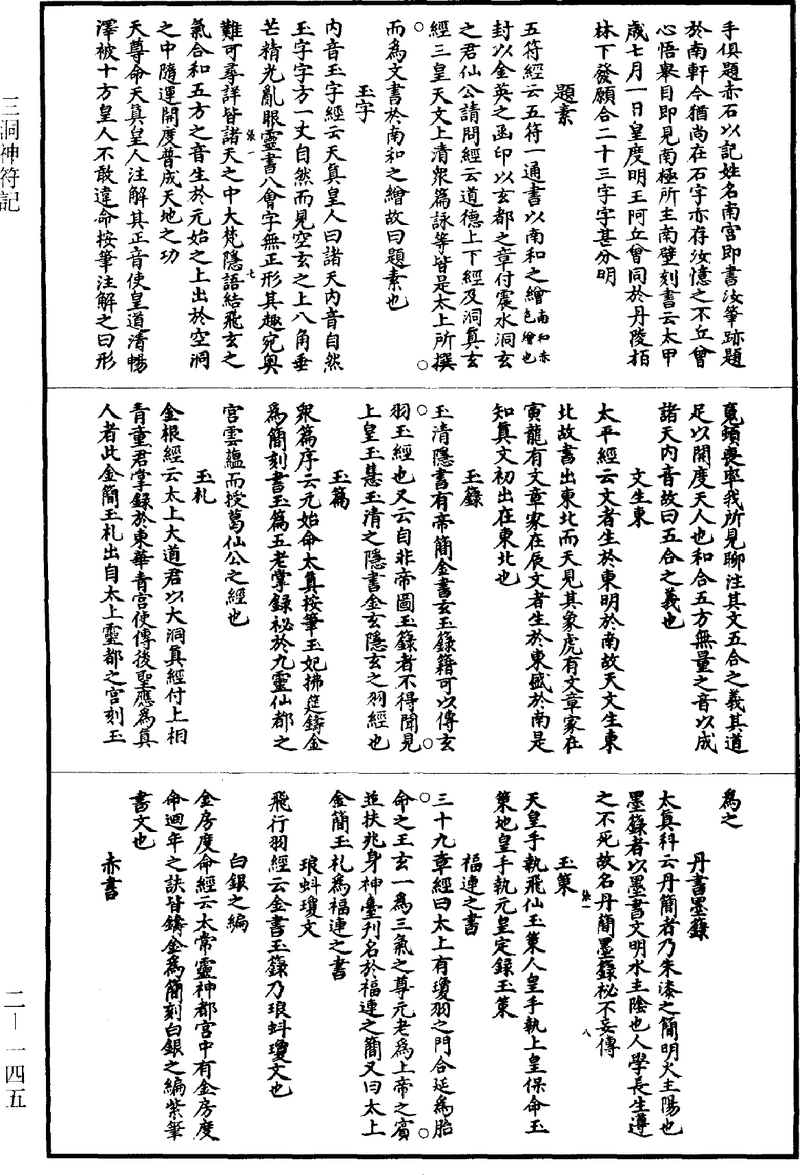 手俱題赤石以記姓名南宮即書汝筆跡題
於南軒今猶尚在石字亦存汝憶之不丘曾
心悟舉目即見南極所主南壁刻書云太甲
歲七月一日皇度明王阿丘曾同於丹陵栢
林下發願合二十三字字甚分明
題素
五符經云五符一通書以南和之繒南和赤色繒也
封以金英之函印以玄都之章付震水洞玄
之君仙公請問經云道德上下經及洞真玄
經三皇天文上清衆篇詠等皆是太上所撰
而為文書於南和之繒故曰題素也
玉字
內音玉字經云天真皇人曰諸天內音自然
玉字字方一丈自然而見空玄之上八角垂
芒精光亂眼靈書八會字無正形其趣宛奧
難可尋詳皆諸天之中大梵隱語結飛玄之
氣合和五方之音生於元始之上出於空洞
之中隨運開度普成天地之功
天尊命天真皇人注解其正音使皇道清暢
澤被十方皇人不敢違命按筆注解之曰形
魂頓喪率我所見聊注其文五合之義其道
足以開度天人也和合五方無量之音以成
諸天內音故曰五合之義也
文生東
太平經云文者生於東明於南故天文生東
北故書出東北而天見其象虎有文章家在
寅龍有文章家在辰文者生於東盛於南是
知真文初出在東北也
玉籙
玉清隱書有帝簡金書玄玉籙籍可以傳玄
羽玉經也又云自非帝圖玉籙者不得聞見
上皇玉慧玉清之隱書金玄隱玄之羽經也
玉篇
衆篇序云元始命太真按筆玉妃拂筵鑄金
為簡刻書玉篇五老掌錄祕於九靈仙都之
宮雲蘊而授葛仙公之經也
玉札
金根經云太上大道君以大洞真經付上相
青童君掌錄於東華青宮使傳後聖應為真
人者此金簡玉札出自太上靈都之宮刻玉
為之
丹書墨籙
太真科云丹簡者乃朱漆之簡明火主陽也
墨籙者以墨書文明水主陰也人學長生遵
之不死故名丹簡墨籙祕不妄傳
玉策
天皇手執飛仙玉策人皇手執上皇保命玉
策地皇手執元皇定錄玉策
福連之書
三十九章經曰太上有瓊羽之門合延為胎
命之王玄一為三氣之尊元老為上帝之賓
並扶兆身神臺刋名於福連之簡又曰太上
金簡玉札為福連之書
琅蚪瓊文
飛行羽經云金書玉籙乃琅蚪瓊文也
白銀之編
金房度命經云太常靈神都宮中有金房度
命迴年之訣皆鑄金為簡刻白銀之編紫筆
書文也
赤書
三洞神符記
二—一四五